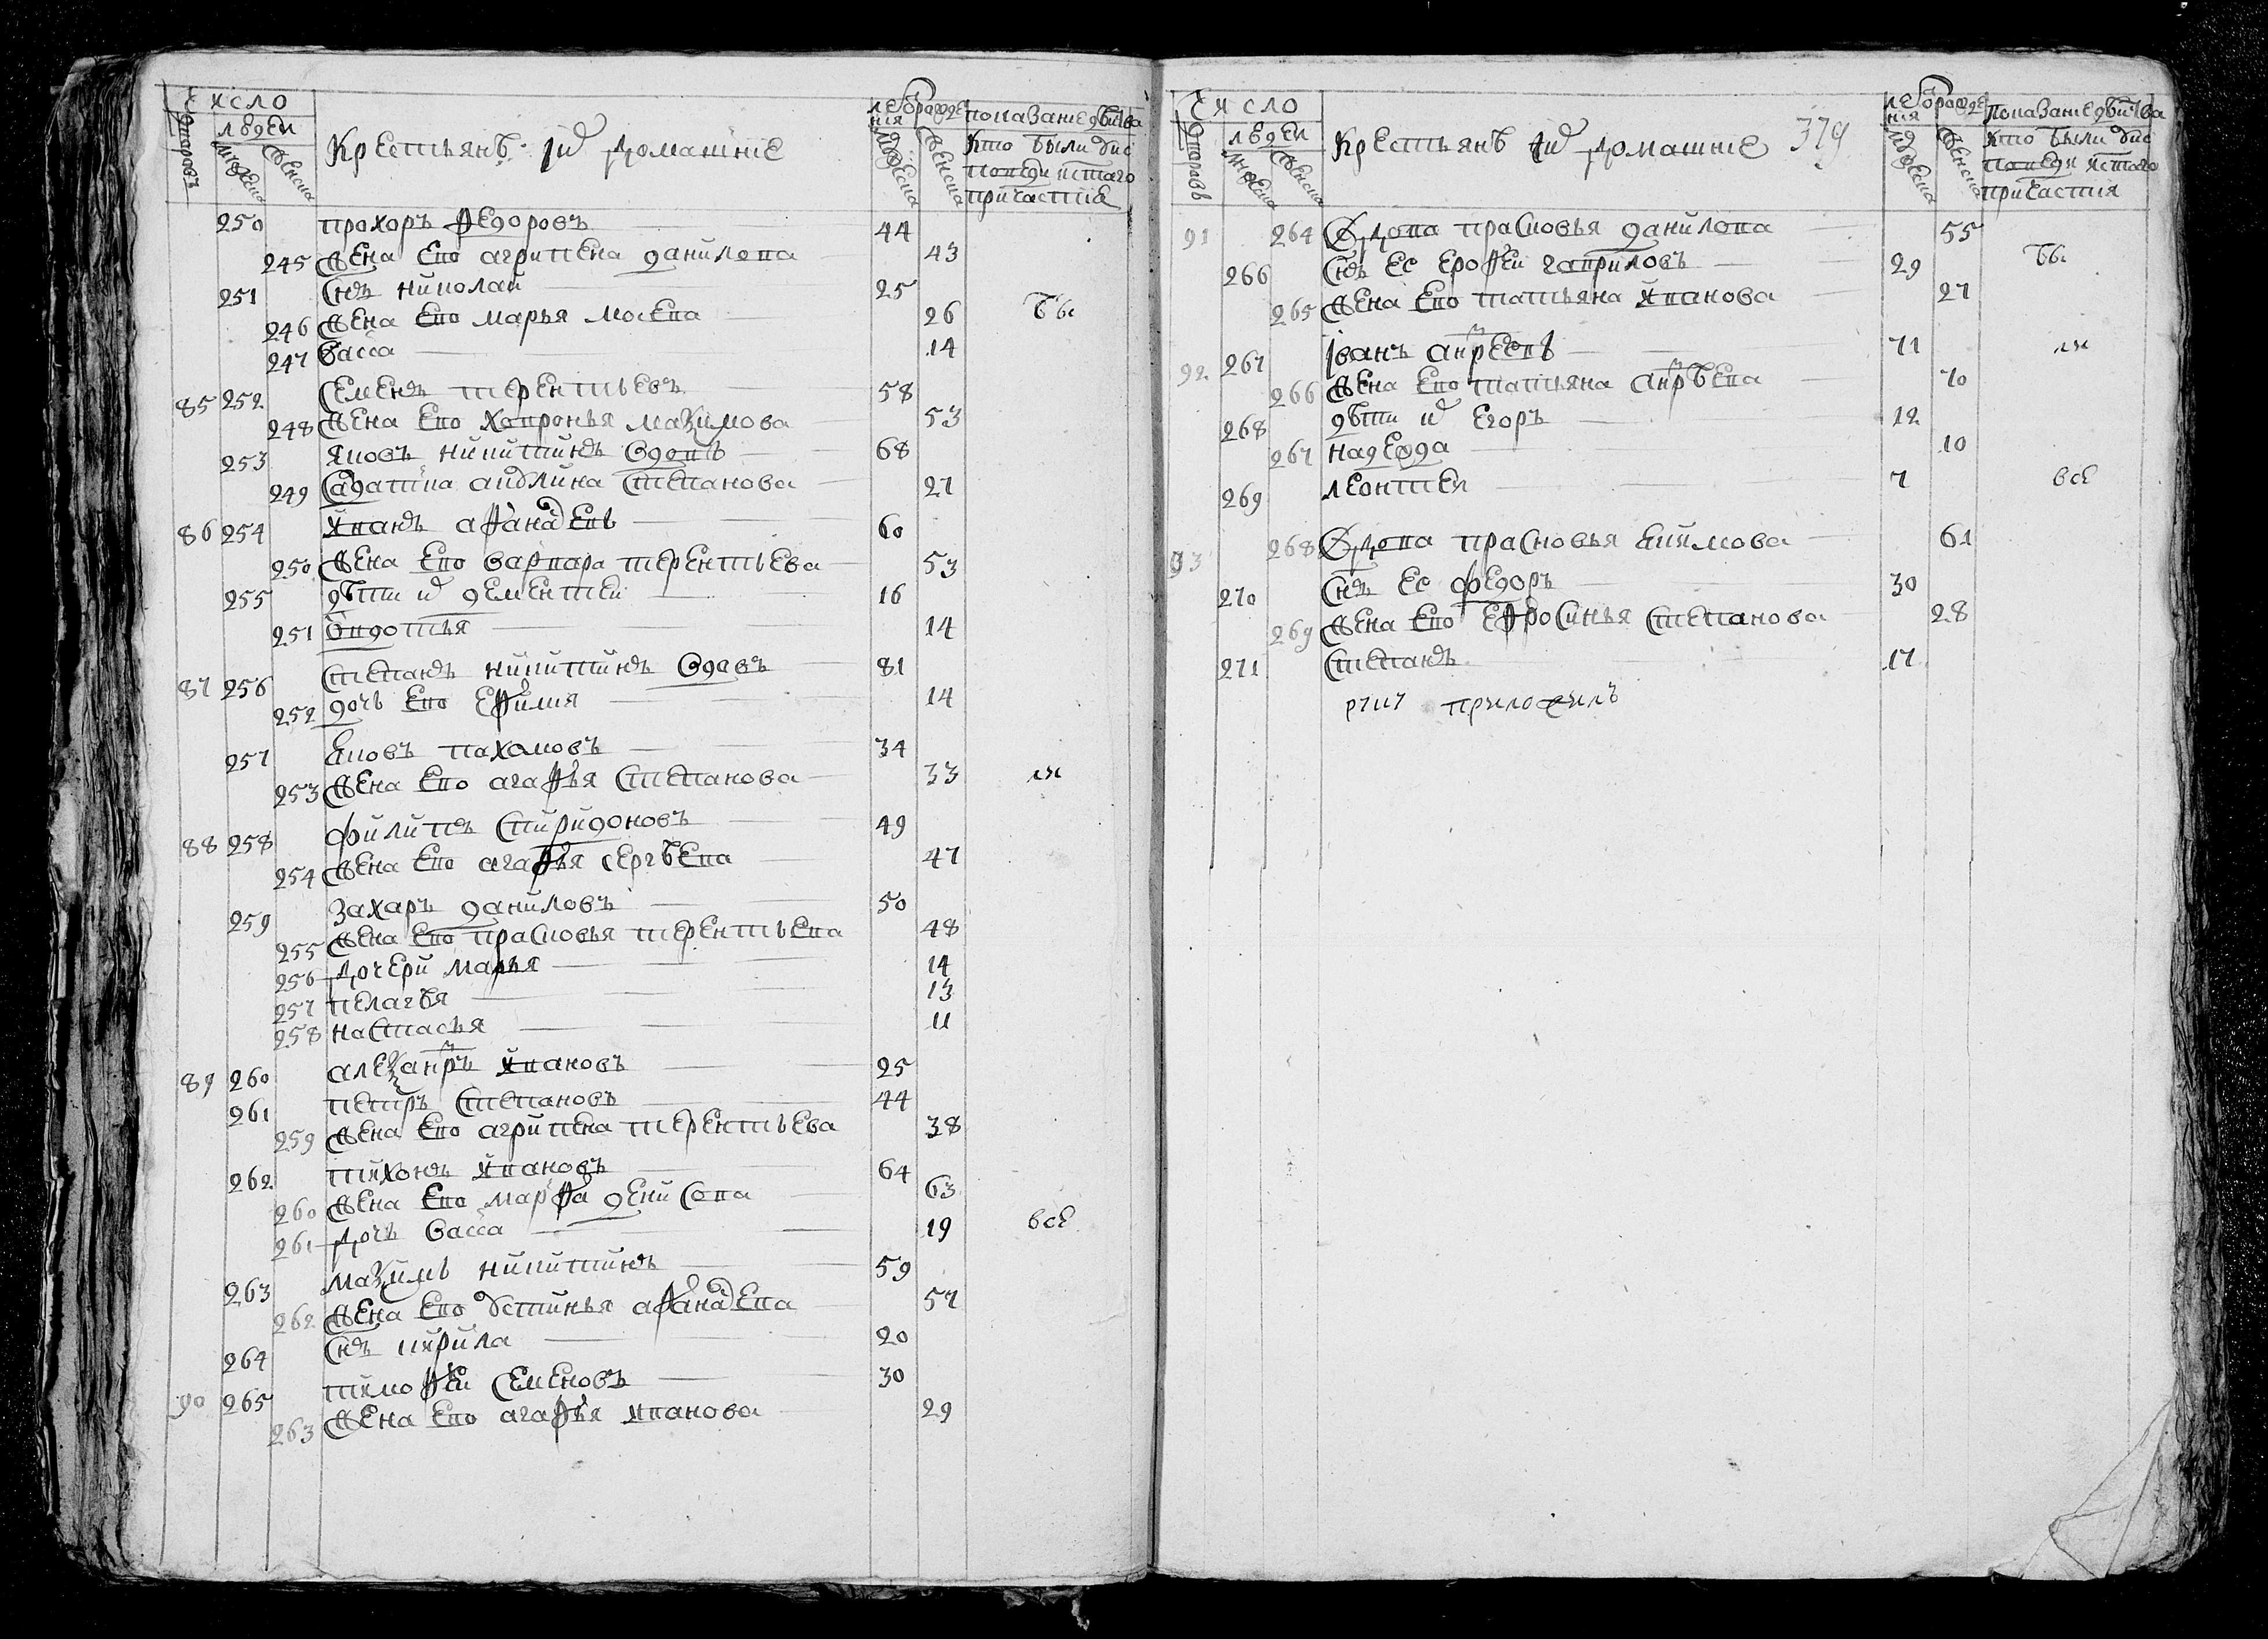 Число
людеи
дворовъ
мужеска
женска
Крестьянѣ іхъ домашние
лѣ рожде
ния
мужеска
женска
показание дѣиства
Кто были у ис
поведи и стаго
причастия
250 прохоръ федоровъ 44
245 жена Ево агрипена данилова 43
251 Снъ николаи 25
246 жена Ево марья мосеева 26 бы
247 васса 14
85 252 Семенъ терентьевъ 58
248 жена Ево ховронья маѯимова 53
253 яковъ никитинъ вдовъ 68
249 Салдатка акулина Степанова 27
86 254 Иванъ афанасевъ 60
250 жена Ево варвара терентьева 53
255 дѣти ихъ дементеи 16
251 Овдотья 14
87 256 Степанъ никитинъ вдовъ 81
252 дочь Ево Ефимия 14
257 яковъ пахомовъ 34
253 жена Ево агафья Степанова 33 ли
88 258 филипъ Спиридоновъ 49
254 жена Ево агафья сергѣева 47
259 Захаръ даниловъ 50
255 жена Ево прасковья терентьева 48
256 дочери марья 14
257 пелагѣя 13
258 настасья 11
89 260 алеѯанръ Ивановъ 25
261 петръ Степановъ 44
259 жена Ево агрипена терентьева 38
262 тихонъ Ивановъ 64
260 жена Ево марфа денисова 63
261 дочь васса 19 все
263 маѯимъ никитинъ 59
262 жена Ево устинья афанасева 57
264 Снъ кирила 20
90 265 тимофеи Семеновъ 30
263 жена Ево агафья иванова 29
Число
людеи
дворовъ
мужеска
женска
Крестьянѣ ихъ домашние 379
лѣ рожде
ния
мужеска
женска
показание дѣиства
Кто были у ис
поведи и стаго
причастия
91 264 вдова прасковья данилова 55
266 Снъ Ее Ерофеи гавриловъ 29 бы
265 жена Ево татьяна Иванова 27
92 267 Іванъ анреевъ 71 ли
266 жена Ево татьяна анрѣева 70
268 дѣти ихъ Егоръ 12
267 надежда 10
269 леонтеи 7 все
93 268 вдова прасковья якимова 61
270 Снъ Ее федоръ 30
269 жена Ево Ефросинья Степанова 28
271 Степанъ 17
приложилъ